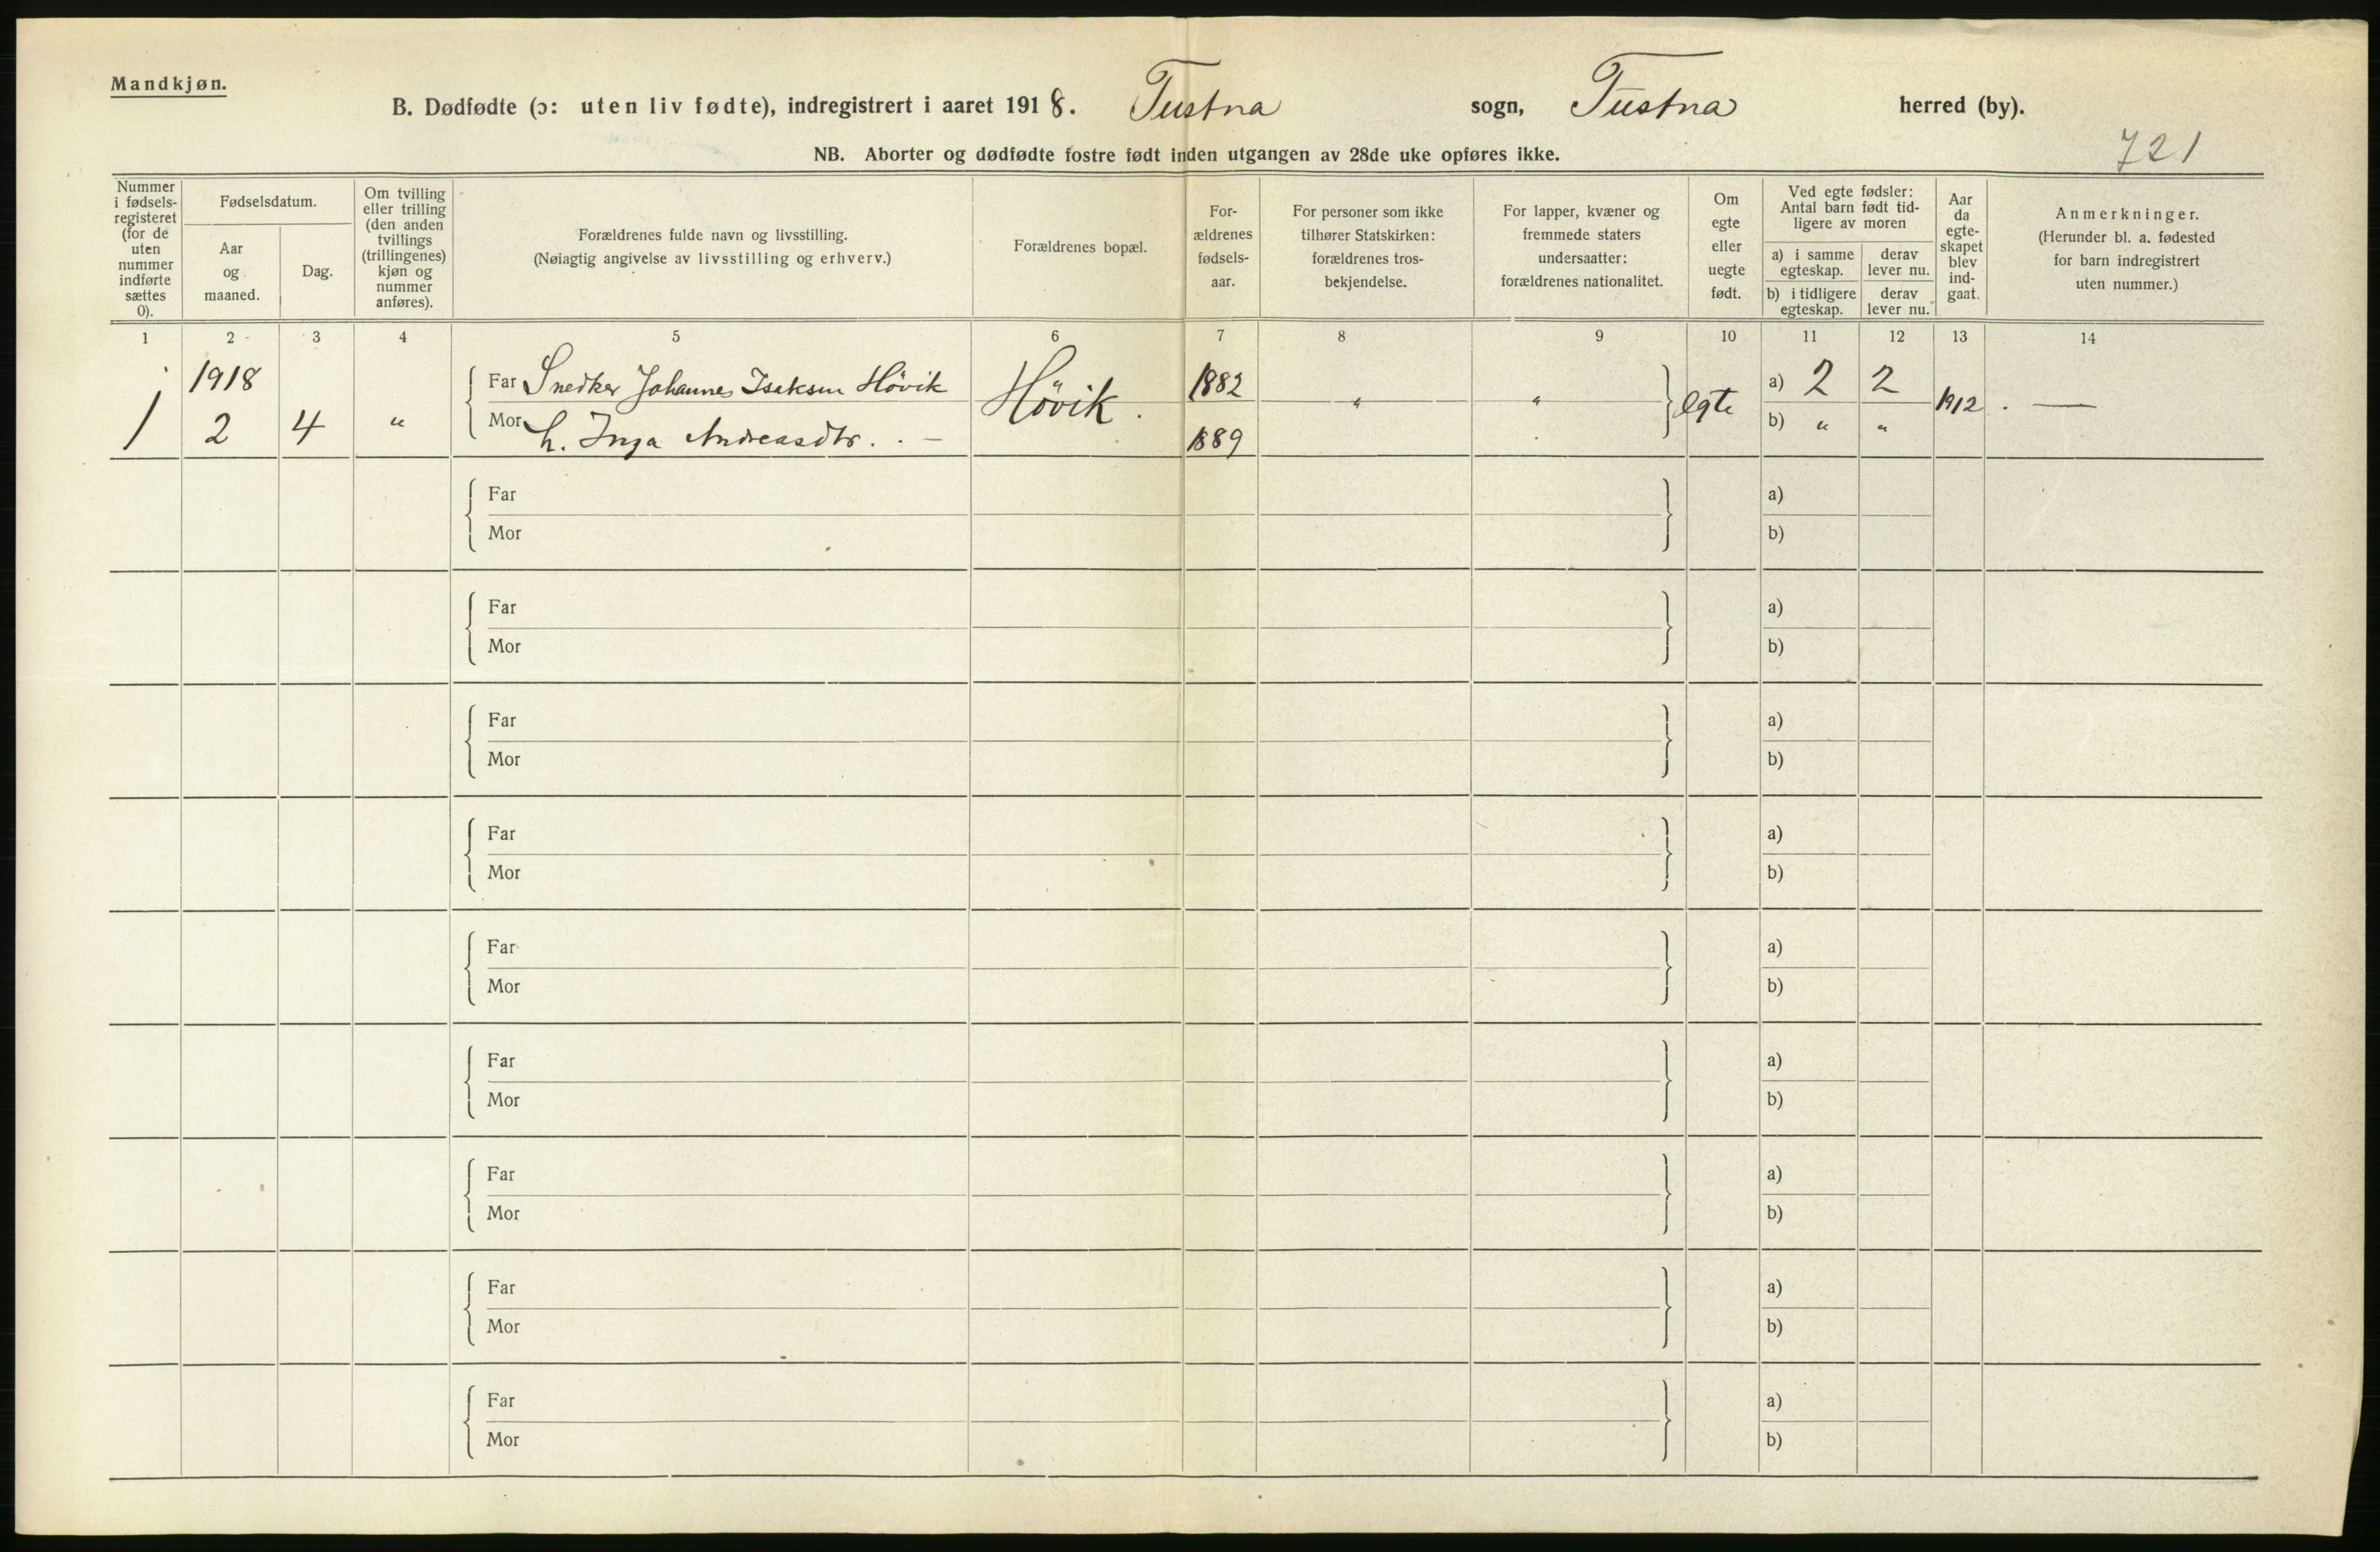 Mandkjøn.
B. Dødfødte (ɔ: uten liv fødte), indregistrert i aaret 1918. Tustna sogn, Tustna herred (by).
721
NB. Aborter og dødfødte fostre født inden utgangen av 28de uke opføres ikke.
Nummer i fødsels-registeret (for de uten nummer indførte sættes 0).
Fødselsdatum.
Aar og maaned.
Dag.
Om tvilling eller trilling (den anden tvillings (trillingenes) kjøn og nummer anføres).
Forældrenes fulde navn og livsstilling.
(Nøiagtig angivelse av livsstilling og erhverv.)
Forældrenes bopæl.
For-ældrenes fødsels-aar.
For personer som ikke tilhører Statskirken: forældrenes tros-bekjendelse.
For lapper, kvæner og fremmede staters undersaatter: forældrenes nationalitet.
Om egte eller uegte født.
Ved egte fødsler: Antal barn født tid-ligere av moren
a) i samme egteskap.
derav lever nu.
b) i tidligere egteskap.
derav lever nu.
Aar da egte-skapet blev ind-gaat.
Anmerkninger.
(Herunder bl. a. fødested for barn indregistrert uten nummer.)
1 2 3 4 5 6 7 8 9 10 11 12 13 14
1918 Far Snedker Johannes Isaksen Hövik Hövik. 1882 " " egte a) 2 2 1912 . —
1 2 4 " Mor h. Inga Andreasdtr. . — 1889 b) " "
Far a)
Mor b)
Far a)
Mor b)
Far a)
Mor b)
Far a)
Mor b)
Far a)
Mor b)
Far a)
Mor b)
Far a)
Mor b)
Far a)
Mor b)
Far a)
Mor b)